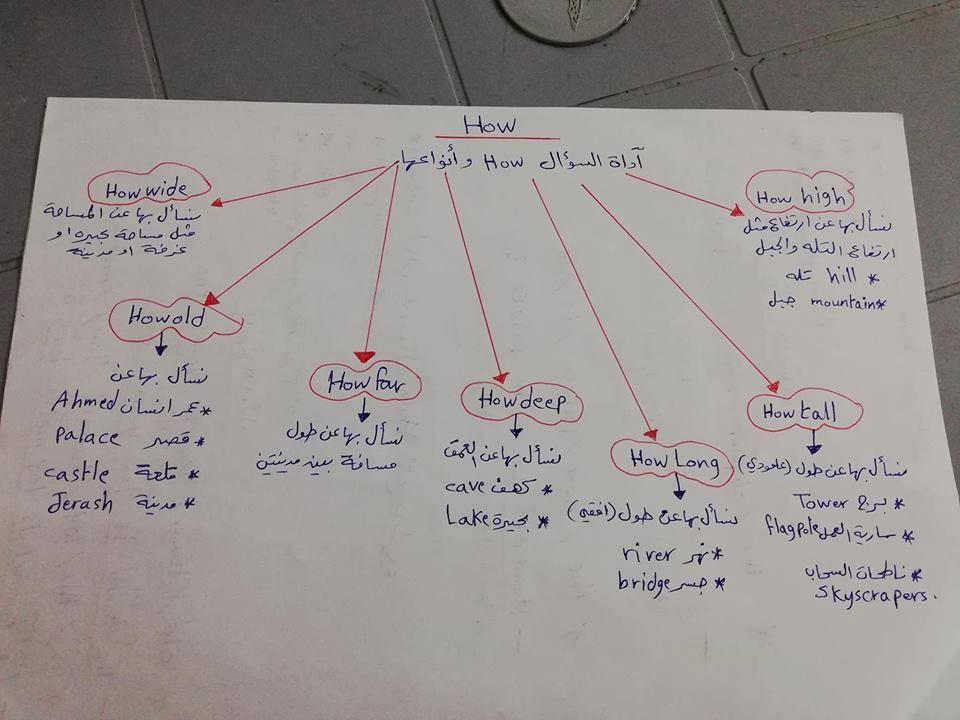 How
آداة السؤال How وأنواعها
How wide
نسأل بها عن المساحة
مثل مساحة بحيره او
غرفة او مدينة
How high
نسأل بها عن ارتفاع مثل
ارتفاع التله والجبل
* hill تله
*mountain جبل
How old
نسأل بها عن
*عمر انسان Ahmed
* قصر palace
* قلعة castle
* مدينة Jerash
How far
نسأل بها عن طول
مسافة بين مدينتين
How deep
نسأل بها عن العمق
* كهف cave
* بحيرة Lake
How Long
نسأل بها عن طول (افقي)
*نهر river
* جسر bridge
How tall
نسأل بها عن طول (عامودي)
* برج Tower
* سارية العمل flagpole
* ناطحات السحاب
skyscrapers.